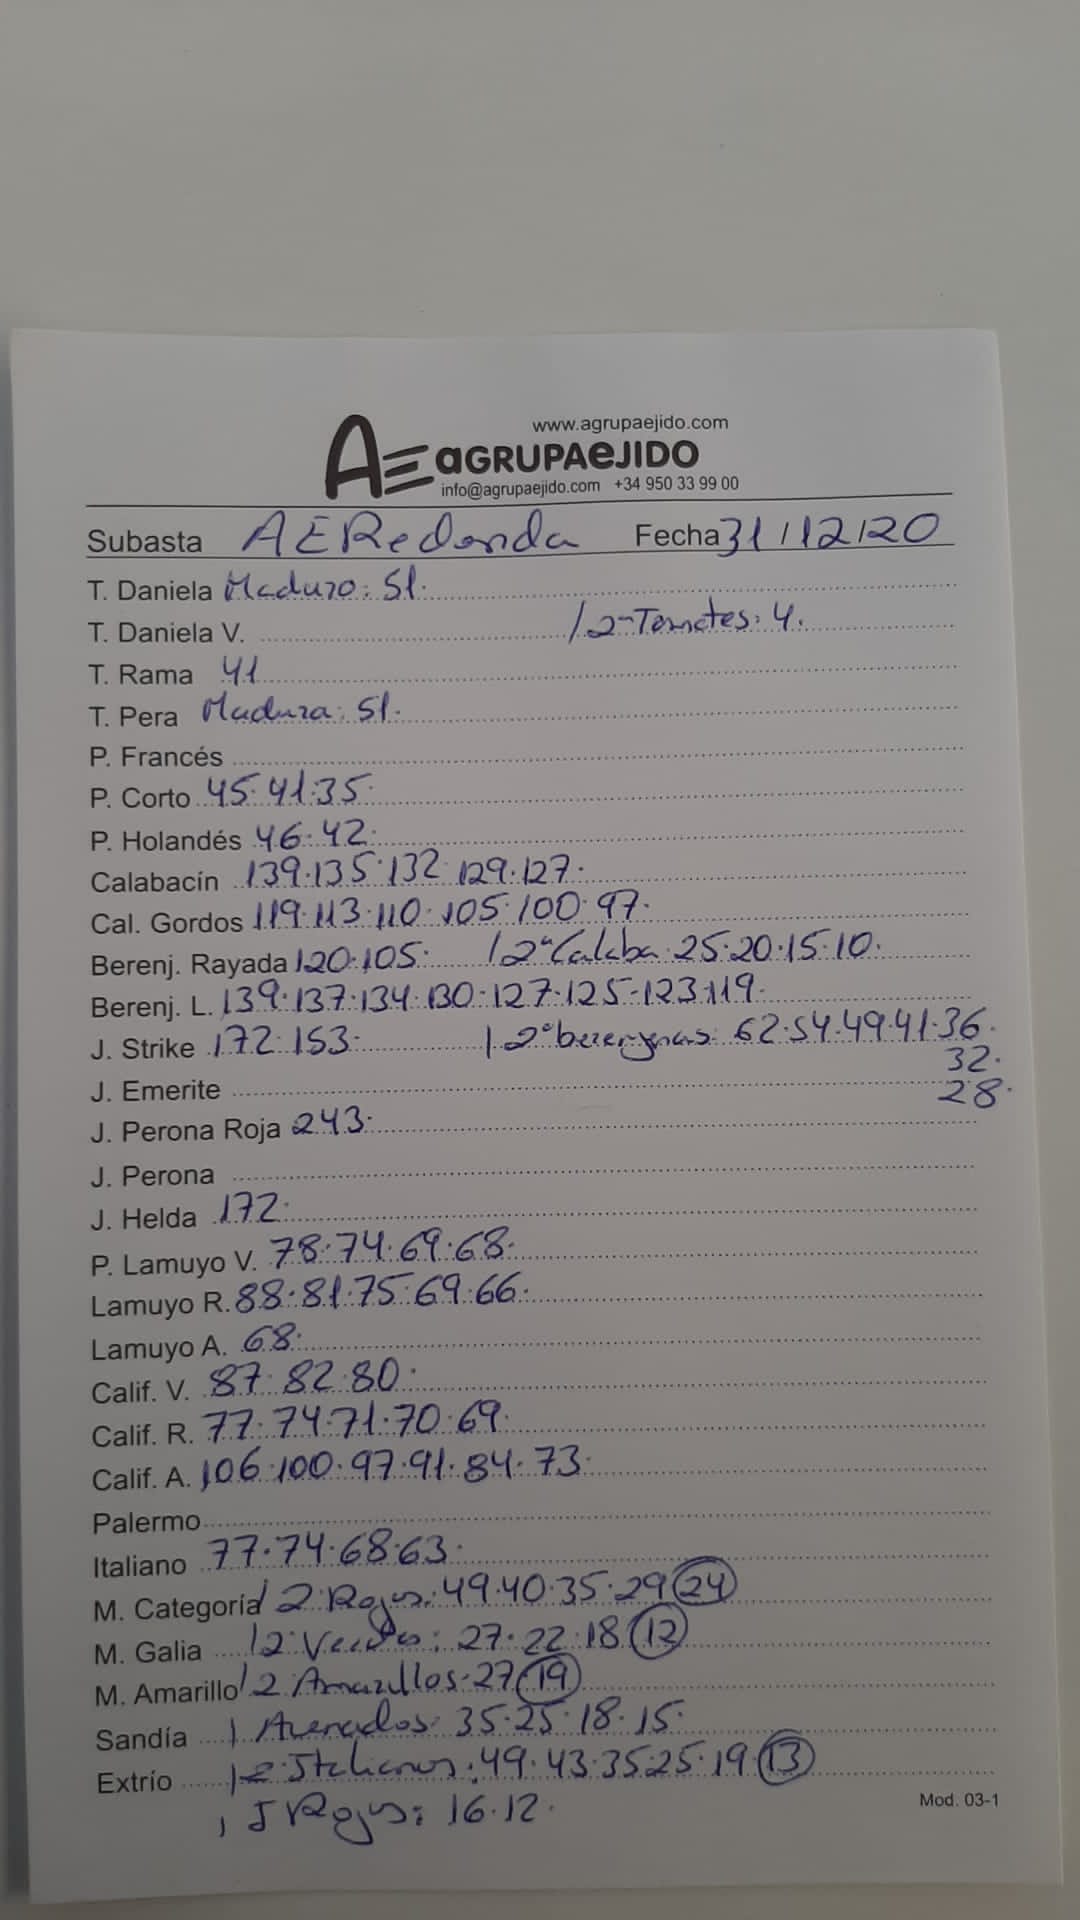 www.agrupaejido.com
AE aGRUPAeJIDO
info@agrupaejido.com +34 950 33 99 00
Subasta AERedonda Fecha 31/12/20
T. Daniela Maduro: 51.
T. Daniela V. / 2ª Tomates: 4.
T. Rama 41
T. Pera Madura: 51.
P. Francés
P. Corto 45.41.35.
P. Holandés 46.42.
Calabacín 139.135.132.129.127.
Cal. Gordos 119.113.110.105.100.97.
Berenj. Rayada 120.105. / 2ª Calaba: 25.20.15.10.
Berenj. L. 139.137.134.130.127.125-123.119.
J. Strike 172.153. / 2ª berenjenas: 62.54.49.41.36.
32.
J. Emerite 28.
J. Perona Roja 243.
J. Perona
J. Helda 172.
P. Lamuyo V. 78.74.69.68.
Lamuyo R. 88.81.75.69.66.
Lamuyo A. 68.
Calif. V. 87.82.80.
Calif. R. 77.74.71.70.69.
Calif. A. 106.100.97.91.84.73.
Palermo
Italiano 77.74.68.63.
M. Categoría / 2 Rojos: 49.40.35.29 24
M. Galia / 2 Verdes: 27.22.18 12
M. Amarillo / 2 Amarillos-27 19
Sandía / Asenados: 35.25.18.15.
Extrío / 2 Italianos: 49.43.35.25.19. 13
/ J Rojos: 16.12.
Mod. 03-1